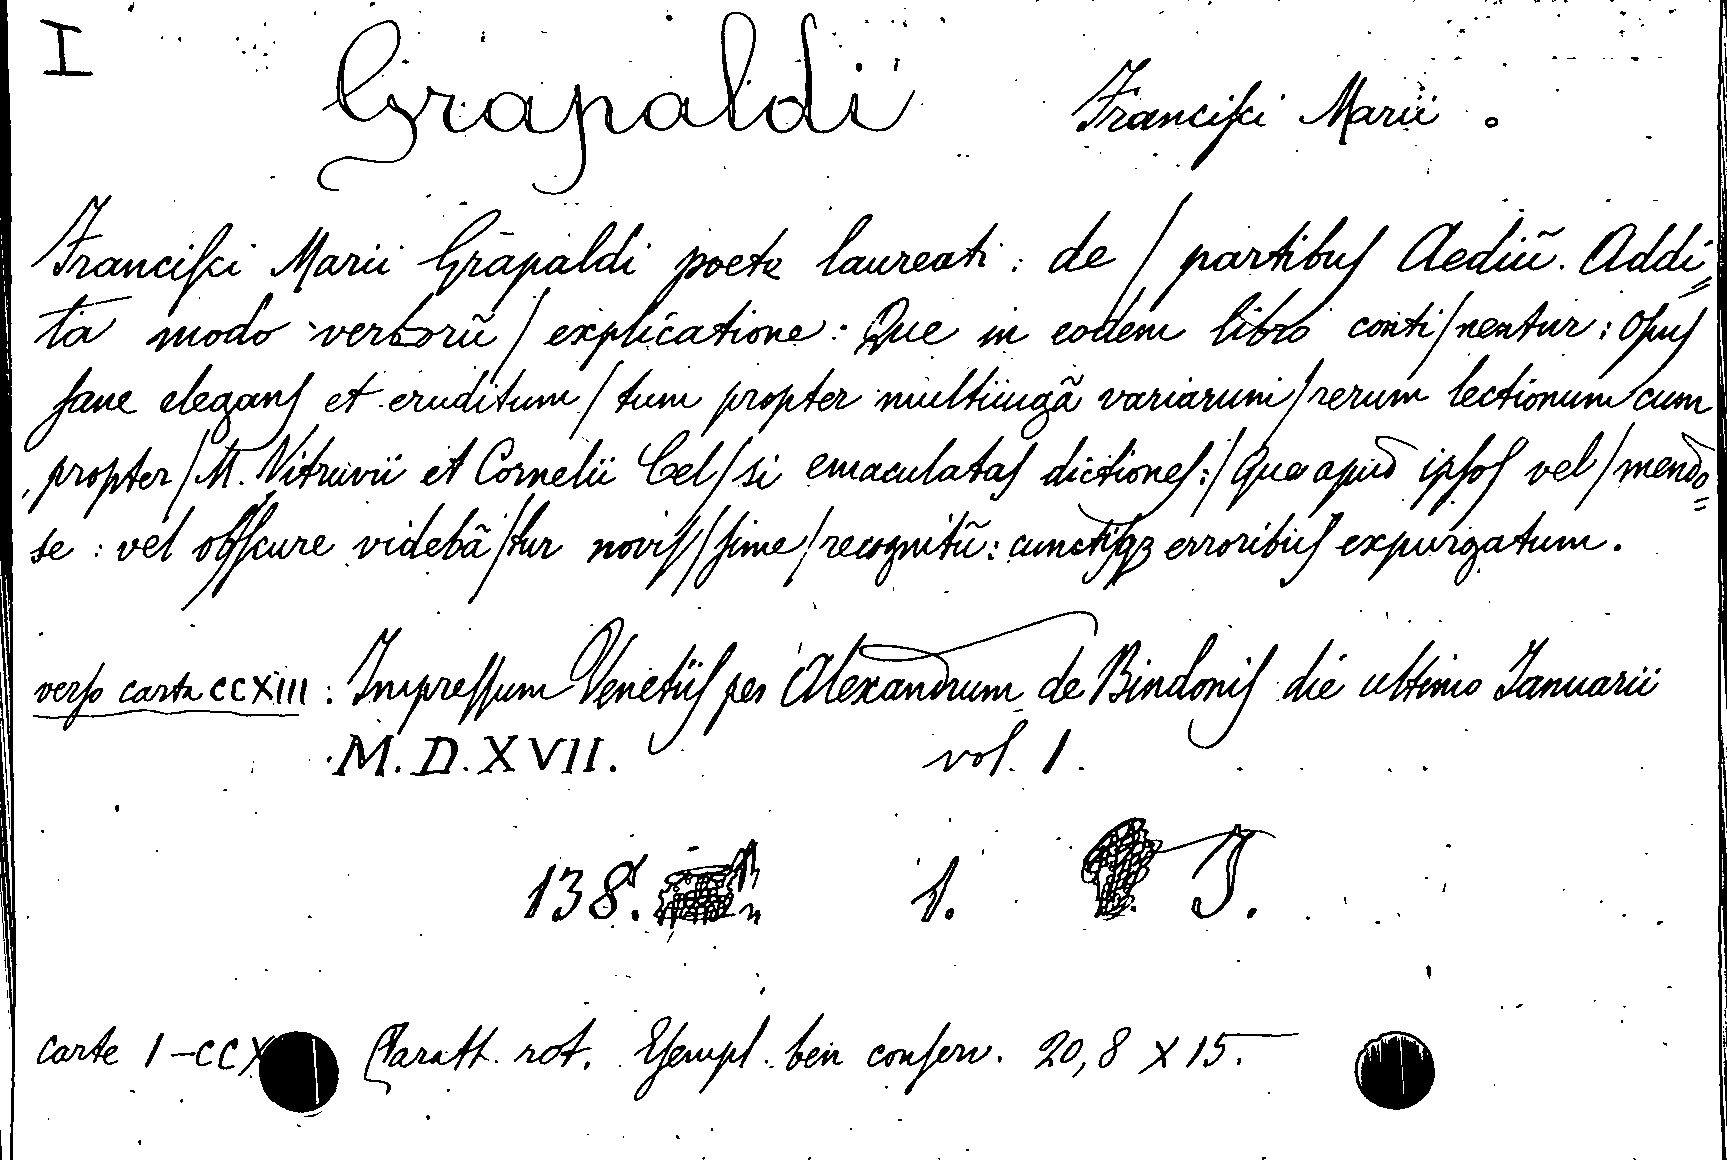 I
Grapaldi Franciſci Marii.
Franciſci Marii Grāpaldi poete laureati: de / partibuſ Aediū. Addi=
ta modo verborū / explicatione: Que in eodem libro conti/nentur: Opuſ
ſane eleganſ et eruditum / tum propter multiiugã variarum / rerum lectionum cum
propter / M. Vitruvii et Cornelii Cel/si emaculataſ dictioneſ: / Que apud ipſoſ vel / mendo=
se: vel obſcure videbã/tur noviſ/ſime / recognitū: cunctiſqz erroribuſ expurgatum.
verſo carta CCXIII: Impreſſum Venetiiſ per Alexandrum de Bindoniſ die ultimo Ianuarii
M.D.XVII. vol. 1.
138. 1. I.
carte 1-CCX Caratt. rot. Eſempl. ben conſerv. 20,8 X 15.